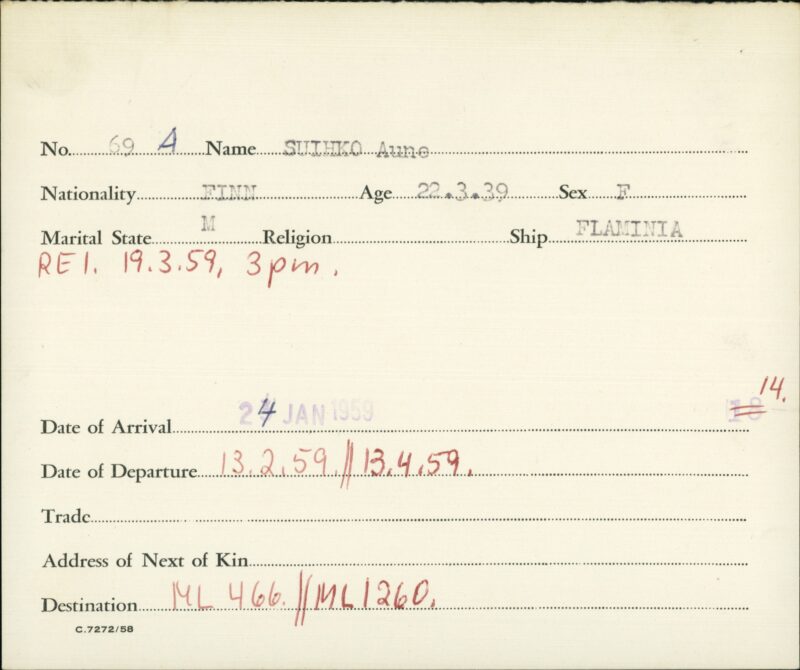 No. 69 A Name SUIHKO Aune
Nationality FINN Age 22.3.39 Sex F
Marital State M Religion Ship FLAMINIA
RE1. 19.3.59, 3pm.
14.
Date of Arrival 24 JAN 1959 18
Date of Departure 13.2.59. // 13.4.59.
Trade
Address of Next of Kin
Destination ML 466. // ML1260.
C.7272/58